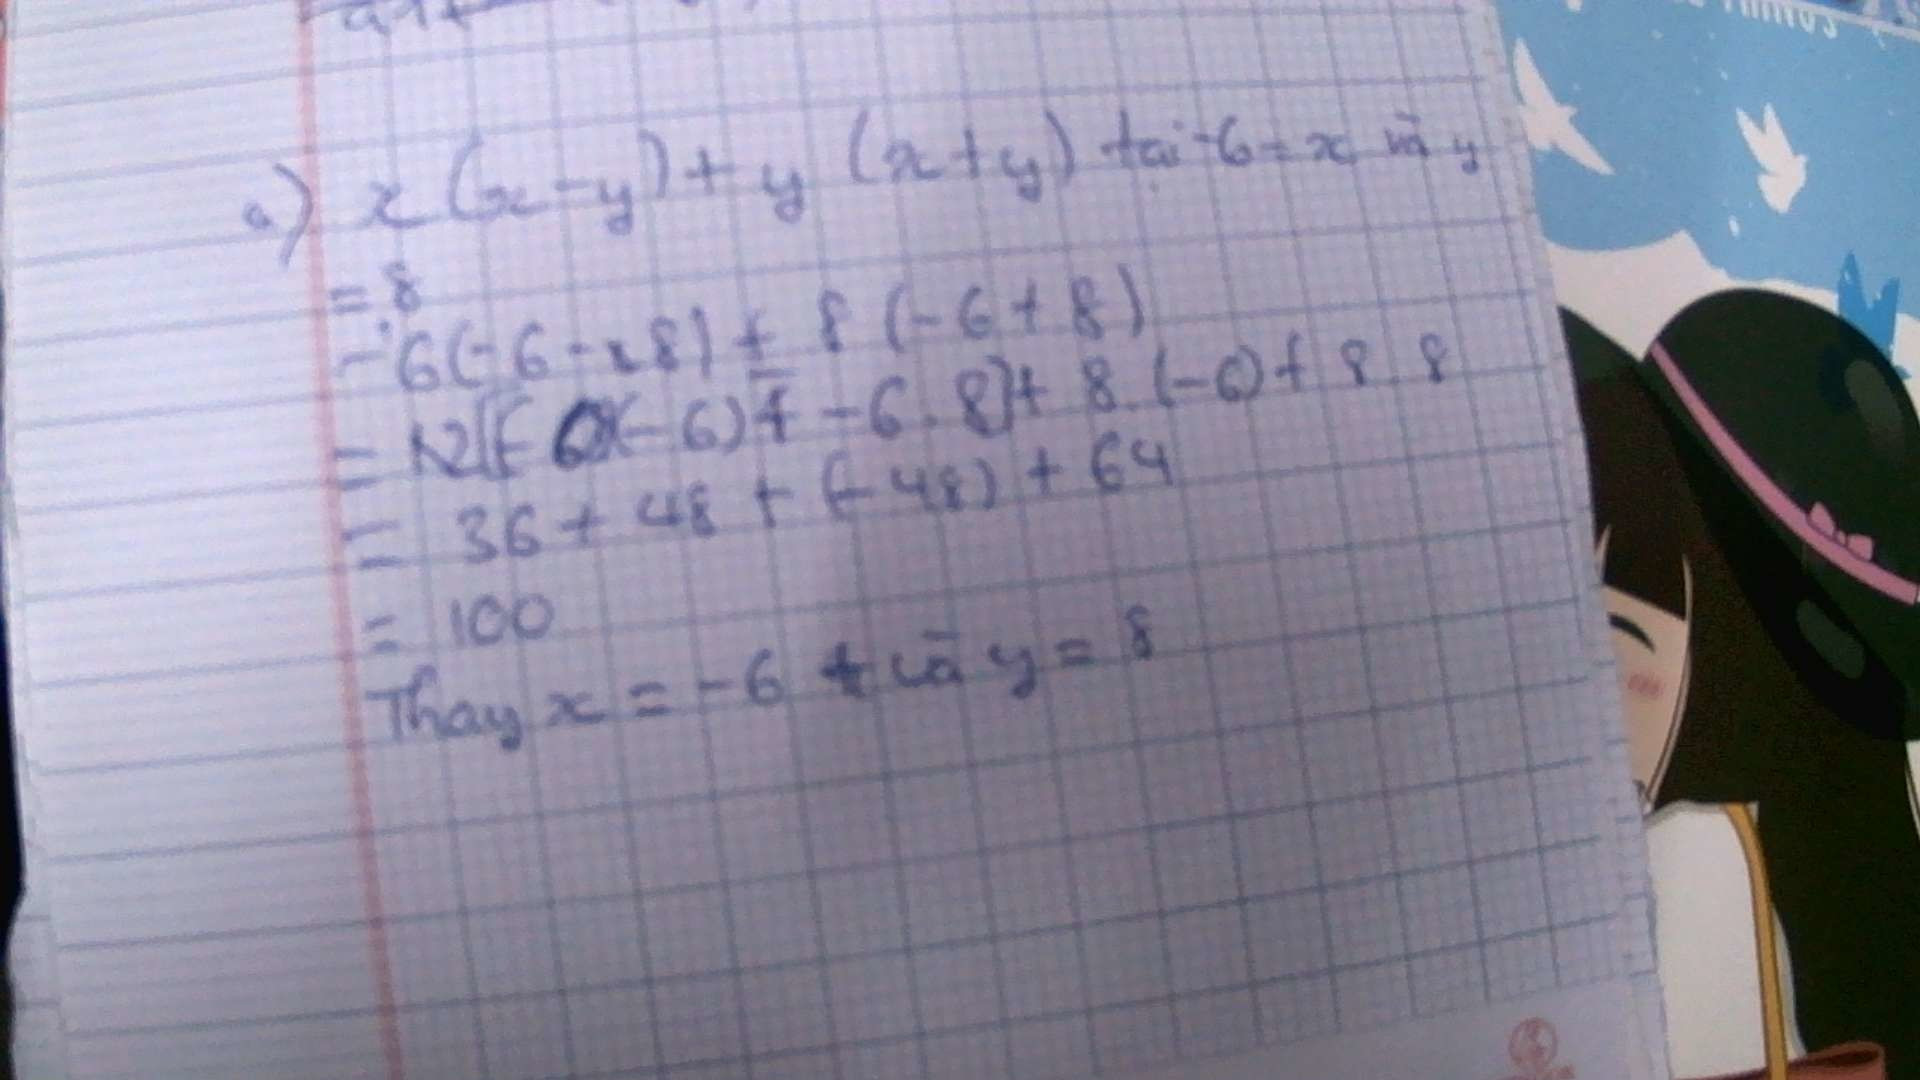 a) x (x - y) + y (x + y) tại -6 = x và y
= 8
- 6(-6 - 8) + 8 (-6 + 8)
= [(-6)(-6) + -6 . 8] + 8 . (-6) + 8 8
= 36 + 48 + (-48) + 64
= 100
Thay x = -6 và y = 8